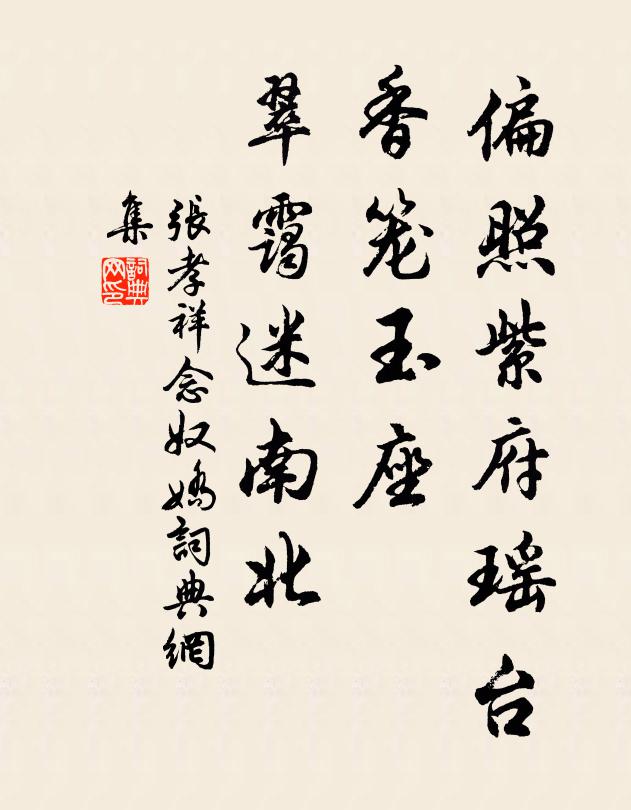 偏照紫府瑶台
香笼玉座
翠霭迷南北
張孝祥念奴嬌詞典網
集
詞典
网印